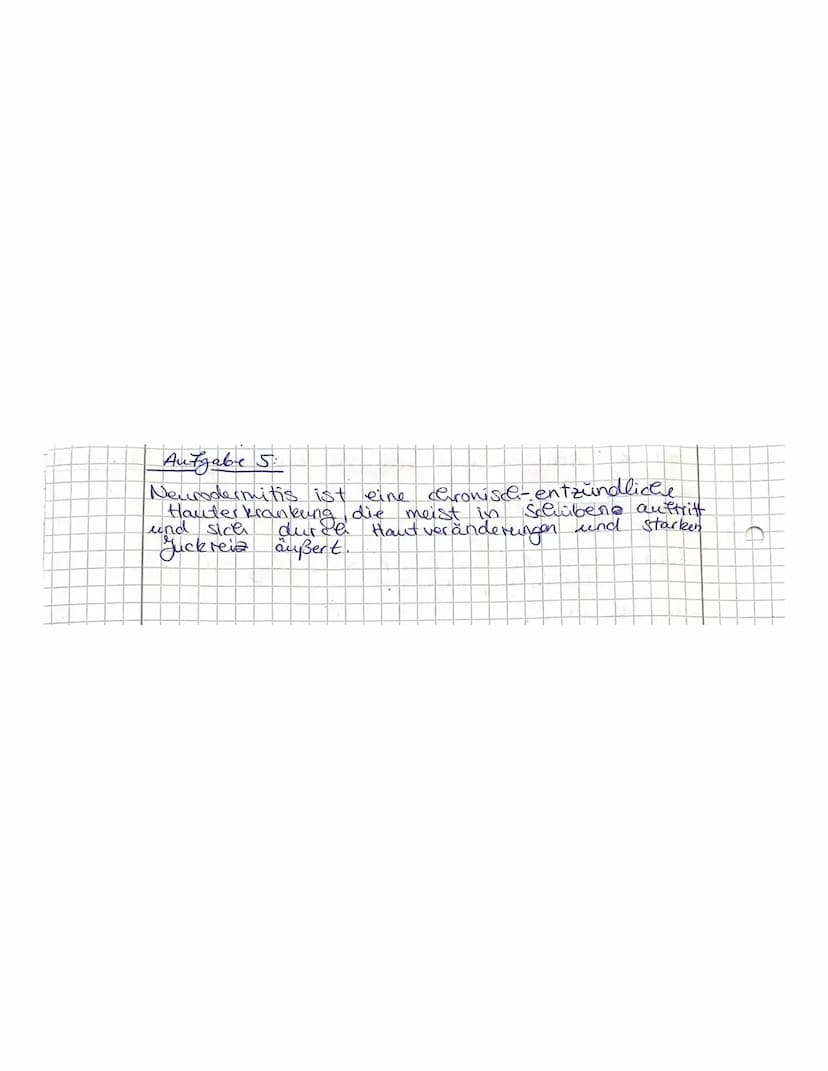 Aufgabe 5:
Neurodermitis ist eine chronisch-entzündliche
Hauterkrankung, die meist in Schüben auftritt
und sich durch Hautveränderungen und starken
Juckreiz äußert.